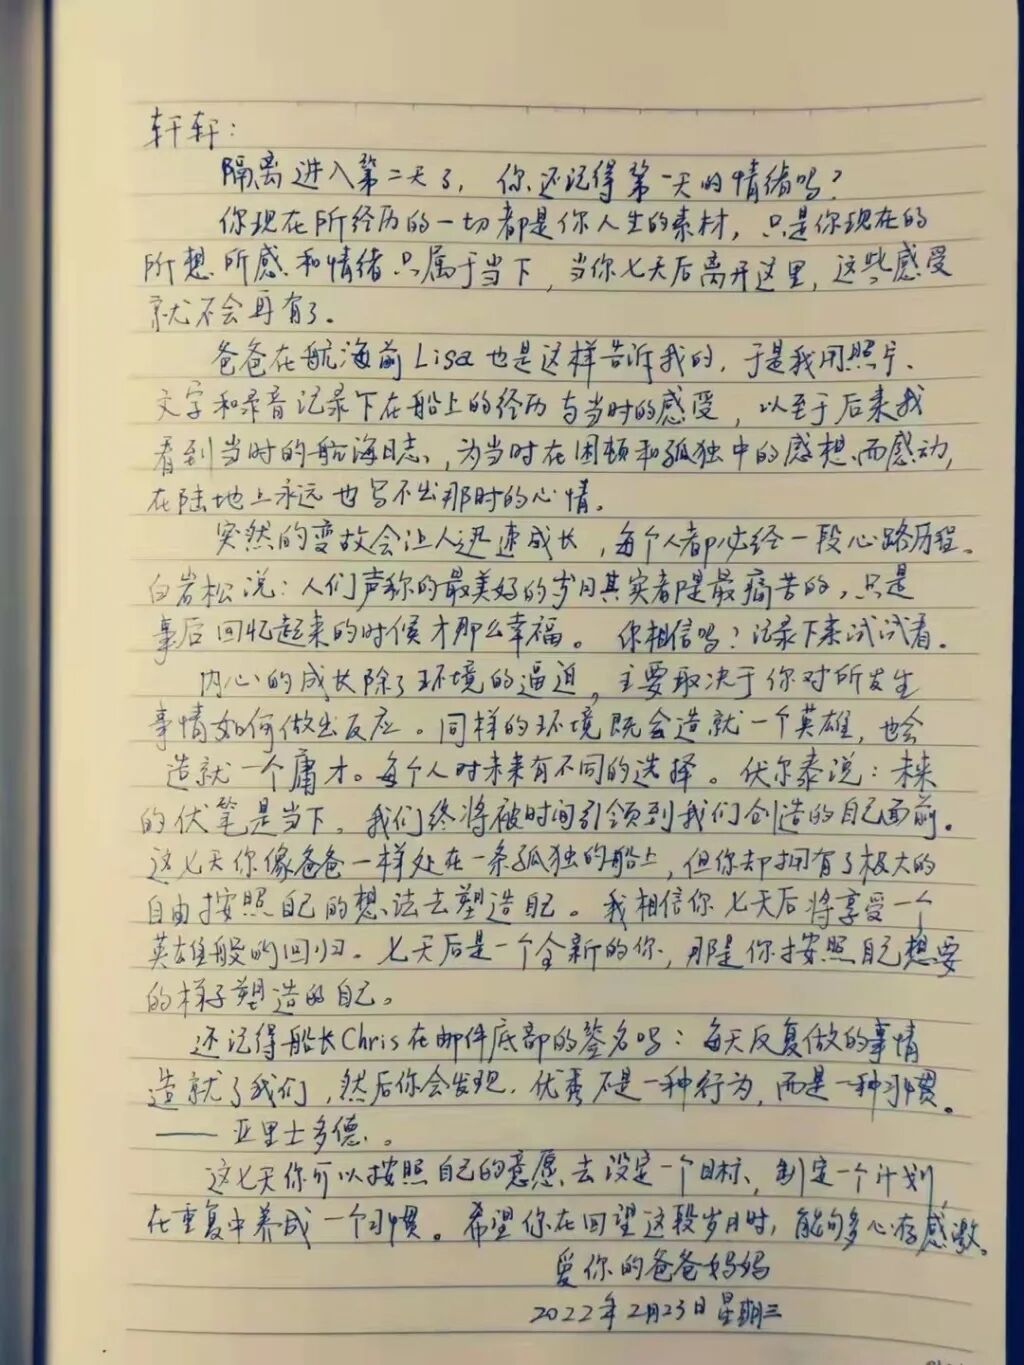 轩轩：
隔离进入第二天了，你还记得第一天的情绪吗？
你现在所经历的一切都是你人生的素材，只是你现在的
所想所感和情绪只属于当下，当你七天后离开这里，这些感受
就不会再有了。
爸爸在航海前Lisa也是这样告诉我的，于是我用照片、
文字和录音记录下在船上的经历与当时的感受，以至于后来我
看到当时的航海日志，为当时在困顿和孤独中的感想而感动，
在陆地上永远也写不出那时的心情。
突然的变故会让人迅速成长，每个人都必经一段心路历程。
白岩松说：人们声称的最美好的岁月其实都是最痛苦的，只是
事后回忆起来的时候才那么幸福。你相信吗？记录下来试试看。
内心的成长除了环境的逼迫，主要取决于你对所发生
事情如何做出反应。同样的环境既会造就一个英雄，也会
造就一个庸才。每个人对未来有不同的选择。伏尔泰说：未来
的伏笔是当下。我们终将被时间引领到我们创造的自己面前。
这七天你像爸爸一样处在一条孤独的船上，但你却拥有了极大的
自由按照自己的想法去塑造自己。我相信你七天后将享受一个
英雄般的回归。七天后是一个全新的你，那是你按照自己想要
的样子塑造的自己。
还记得船长Chris在邮件底部的签名吗：每天反复做的事情
造就了我们，然后你会发现，优秀不是一种行为，而是一种习惯。
——亚里士多德。
这七天你可以按照自己的意愿去设定一个目标，制定一个计划，
在重复中养成一个习惯。希望你在回望这段岁月时，能够多心存感激。
爱你的爸爸妈妈
2022年2月23日星期三